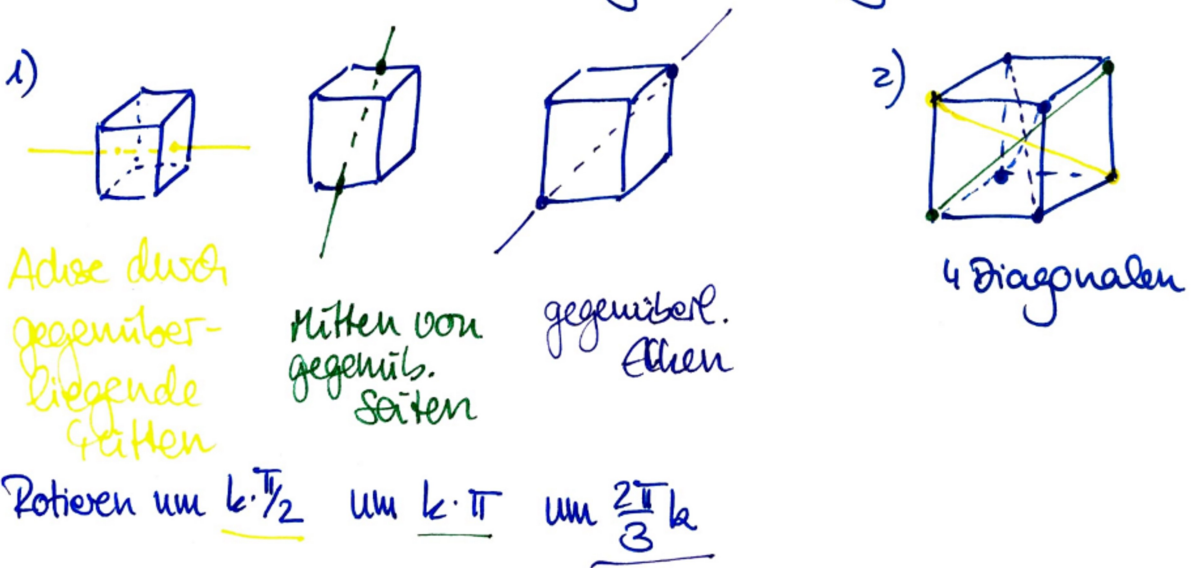 1)
2)
Achse durch
gegenüber-
liegende
Mitten von
gegenüb.
Seiten
gegenüberl.
Ecken
4 Diagonalen
Rotieren um k·π/2 um k·π um 2π/3 k